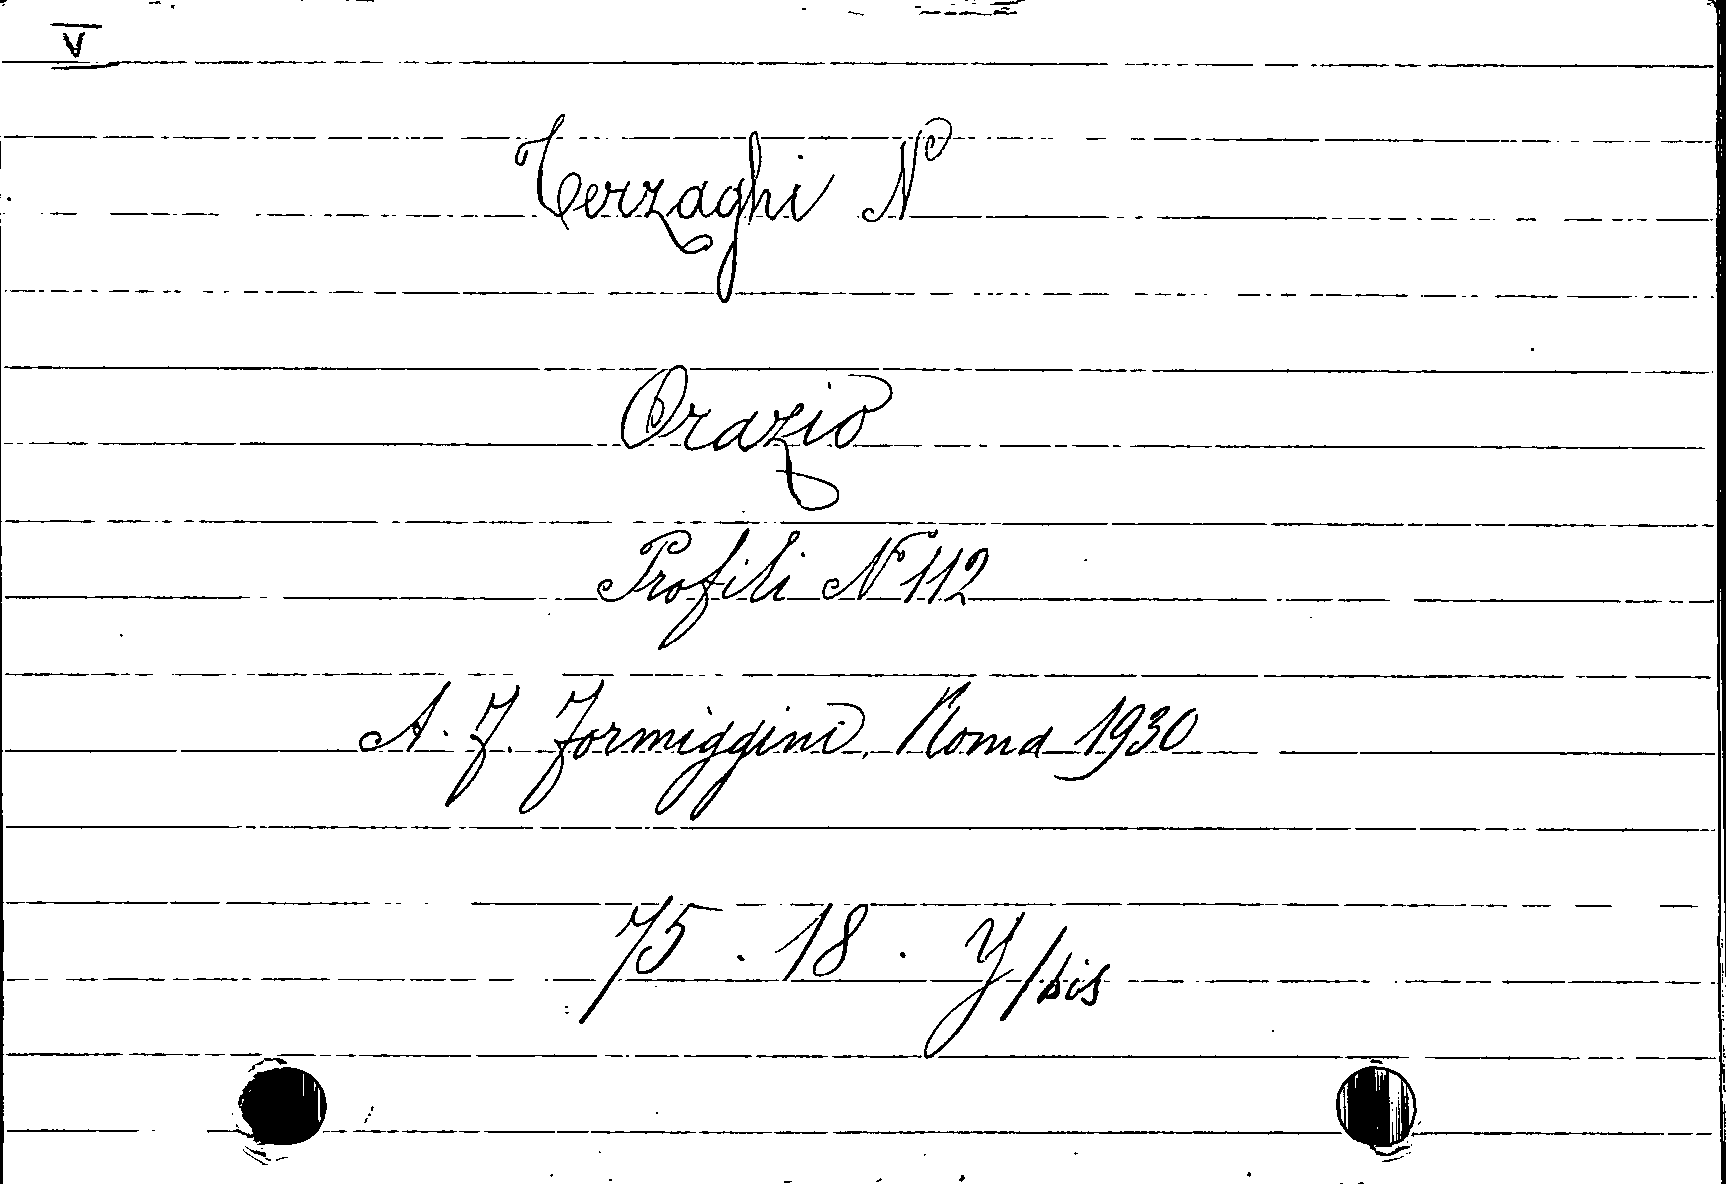 V
Terzaghi N
Orazio
Profili N 112
A. F. Formiggini, Roma 1930
75 . 18 . Y/bis